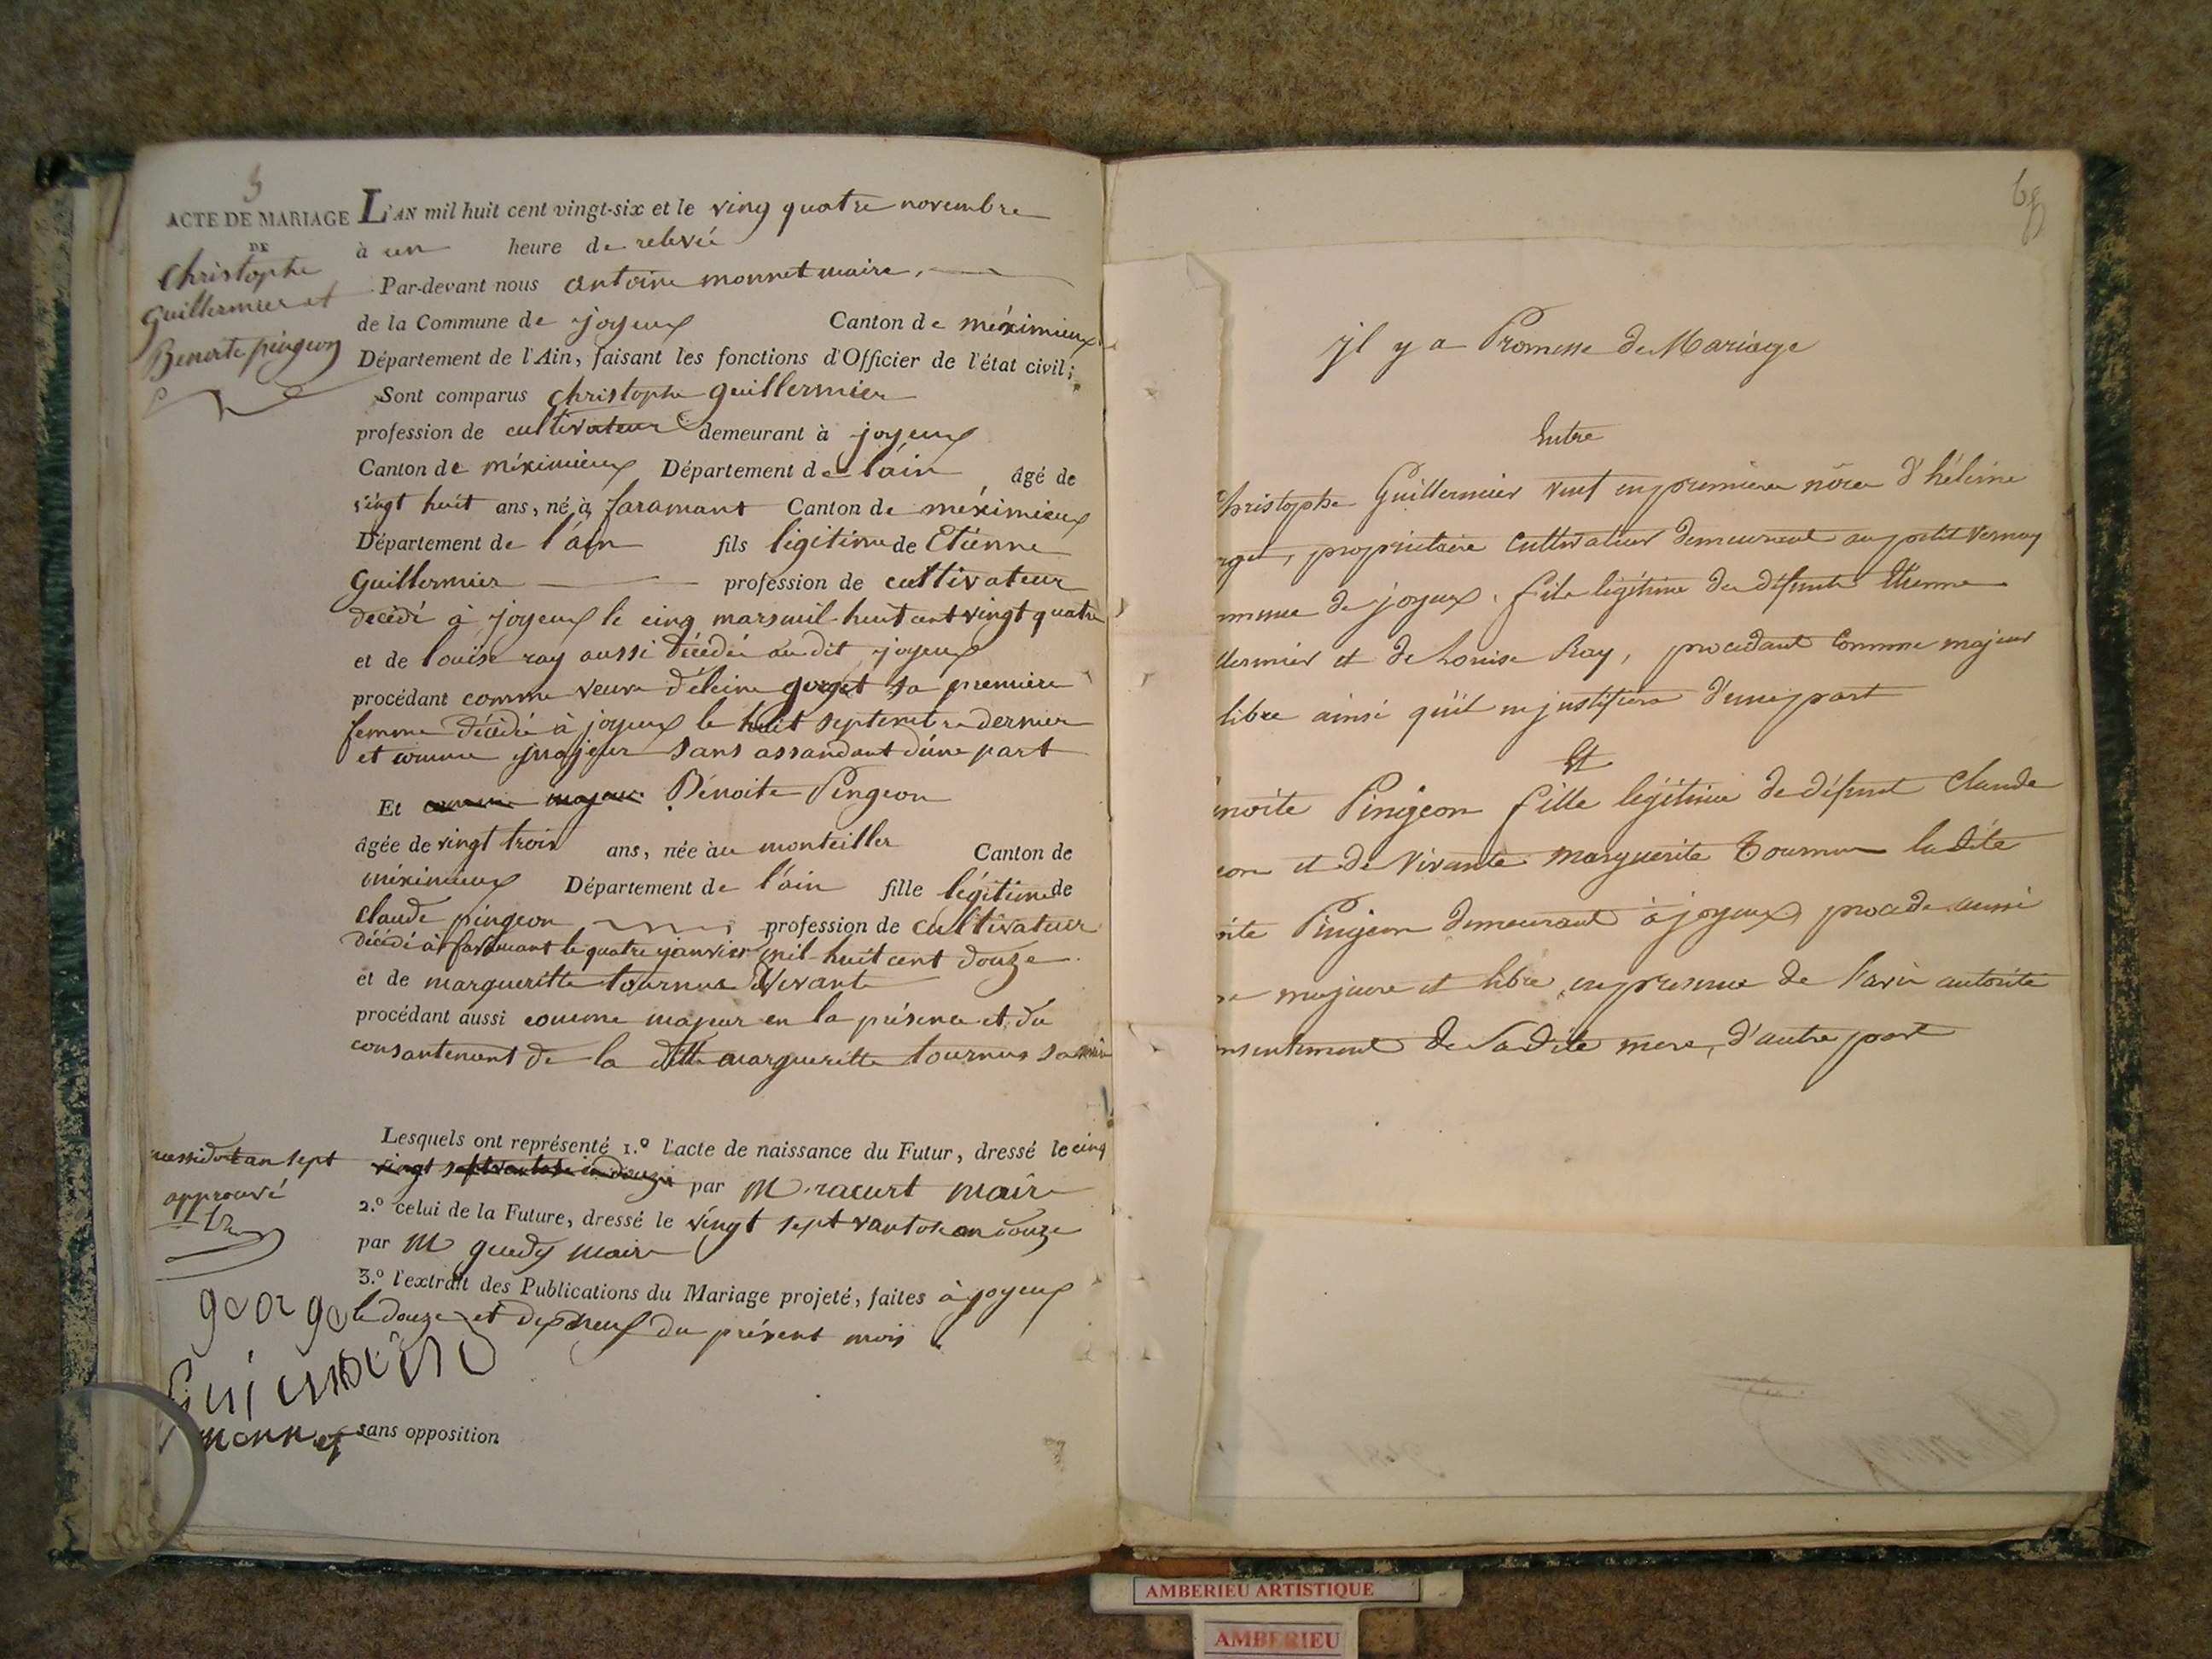 3
ACTE DE MARIAGE
DE
Christophe
Guillermier et
Benoite pingeon
L'AN mil huit cent vingt-six et le ving quatre novembre
à un heure de relevée
Par-devant nous antoine monnet maire,
de la Commune de joyeux Canton de méximieux
Département de l'Ain, faisant les fonctions d'Officier de l'état civil;
Sont comparus christophe guillermier
profession de cultivateur demeurant à joyeux
Canton de méximieux Département de l'ain âgé de
vingt huit ans, né à faramant Canton de méximieux
Département de l'ain fils légitime de Etienne
Guillermier profession de cultivateur
décédé à joyeux le cinq mars mil huit cent vingt quatre
et de louise ray aussi décédée au dit joyeux
procédant comme veuve d'éleine gorget sa première
femme décédé à joyeux le huit septembre dernier
et comme majeur sans assandant d'une part
Et comme majeur Bénoite Pingeon
âgée de vingt trois ans, née au monteiller Canton de
méximieux Département de l'ain fille légitime de
claude pingeon profession de cultivateur
décédé à faramant le quatre janvier mil huit cent douze
et de margueritte tournus vivante
procédant aussi comme majeur en la présence et du
consantement de la ditte margueritte tournus sa mère
Lesquels ont représenté 1.º l'acte de naissance du Futur, dressé le cinq
messidor an sept
approuvé
vingt sept vantose an douze par M racurt maire
2.º celui de la Future, dressé le vingt sept vantose an douze
par M guedy maire
3.º l'extrait des Publications du Mariage projeté, faites à joyeux
le douze et dix neuf du présent mois
george
monnet
sans opposition
68
jl y a Promesse de Mariage
Entre
Christophe Guillermier veuf en premiere nôce d'héleine
rget, propriétaire cultivateur demeurant au petit vernay
mmune de joyeux, fils légitime de défunts Etienne
llermier et de Louise Ray, procédant Comme majeur
libre ainsi qu'il en justifiera d'une part
Et
noite Pingeon fille légitime de défunt Claude
eon et de vivante marguerite Tournus ladite
oite Pingeon demeurant à joyeux, procède aussi
me majeure et libre, en presence de l'avis autorité
nsentement de Sadite mere, d'autre part
AMBERIEU ARTISTIQUE
AMBERIEU